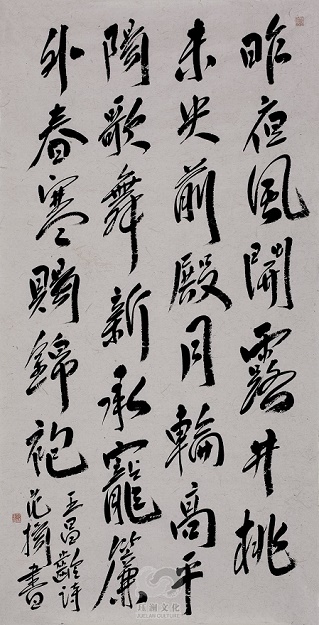 昨夜風開露井桃
未央前殿月輪高平
陽歌舞新承寵簾
外春寒賜錦袍
王昌齡詩
范揚書
文化
CULTURE